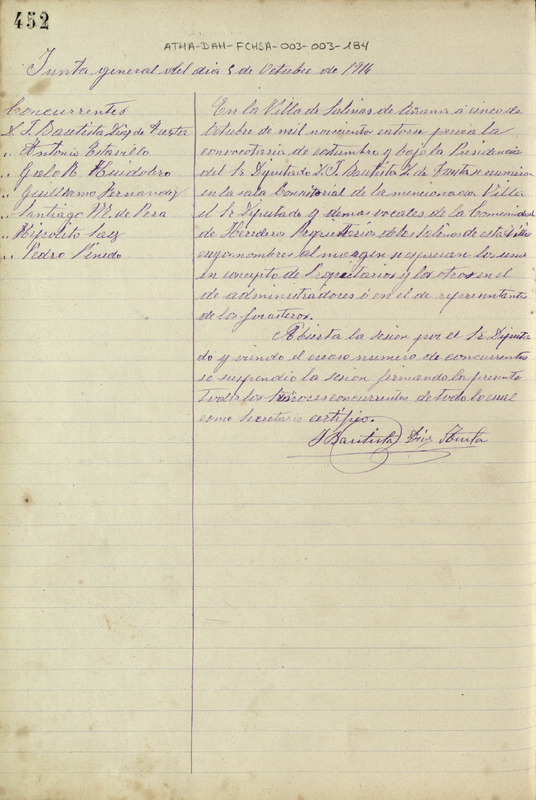 452
ATHA-DAH-FCHSA-003-003-184
Junta general del dia 5 de Octubre de 1914
Concurrentes
D. J. Bautista Diaz de Tuesta
„ Antonio Estavillo
„ Julo R Huidobro
„ Guillermo Fernandez
„ Santiago M. de Pera
„ Hipolito Saez
„ Pedro Pinedo
En la Villa de Salinas de Añana á cinco de
Octubre de mil novecientos catorce previa la
convocatoria de costumbre y bajo la Presidencia
del Sr Diputado D. J. Bautista D. de Tuesta se reunieron
en la sala Consistorial de la mencionada Villa
el Sr Diputado y demas vocales de la Comunidad
de Herederos Propietarios de las Salinas de esta Villa
cuyos nombres al margen se expresan los unos
en concepto de Propietarios y los otros en el
de administradores ó en el de representantes
de los forasteros.
Abierta la sesion por el Sr Diputa
do y viendo el escaso numero de concurrentes
se suspendió la sesion firmando la presente
todos los Señores concurrentes de todo lo cual
como Secretario certifijo.
J Bautista Diaz Tuesta